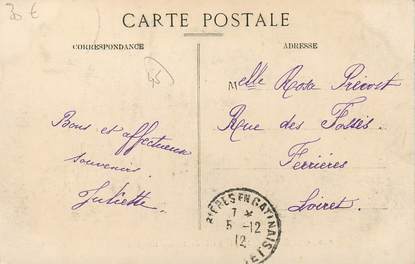 30 €
CARTE POSTALE
CORRESPONDANCE
ADRESSE
45
Melle Rosa Prévost
Rue des Fossés.
Ferrières
Loiret.
Bons et affectueux
souvenirs.
Juliette.
RIÈRES EN GATINAIS
7 *
5 -12
12